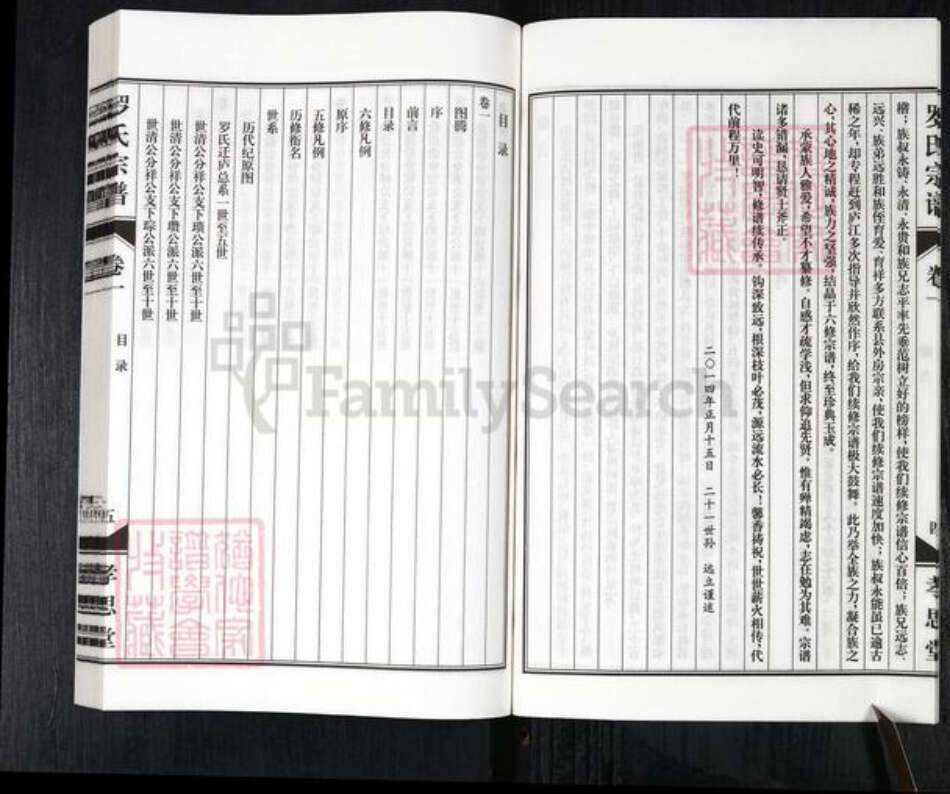 楷；族叔永铸、永清、永贵和族兄志平率先垂范树立好的榜样，使我们续修宗谱信心百倍；族兄远志、
远兴、族弟远胜和族侄育爱、育祥多方联系县外房宗亲，使我们续修宗谱速度加快；族叔永能虽已逾古
稀之年，却专程赶到庐江多次指导并欣然作序，给我们续修宗谱极大鼓舞。此乃举全族之力，凝合族之
心，其心地之精诚，族力之坚强，结晶于六修宗谱，终至珍典玉成。
承蒙族人雅爱，希望不才纂修。自感才疏学浅，但求仰追先贤。惟有殚精竭虑，志在勉为其难。宗谱
诸多错漏，恳请贤士斧正。
读史可明智，修谱续传承。钩深致远，根深枝叶必茂，源远流水必长！馨香祷祝，世世薪火相传，代
代前程万里！
二〇一四年正月十五日 二十一世孙 远立谨述
罗氏宗谱 卷一 四 孝思堂
目录
卷一
图腾
序
前言
目录
六修凡例
五修凡例
原序
历修衔名
世系
历代纪原图
罗氏迁庐总系一世至五世
世清公分祥公支下瓒公派六世至十世
世清公分祥公支下瓒公派六世至十世
世清公分祥公支下琮公派六世至十世
罗氏宗谱 卷一 目录 五 孝思堂
FamilySearch